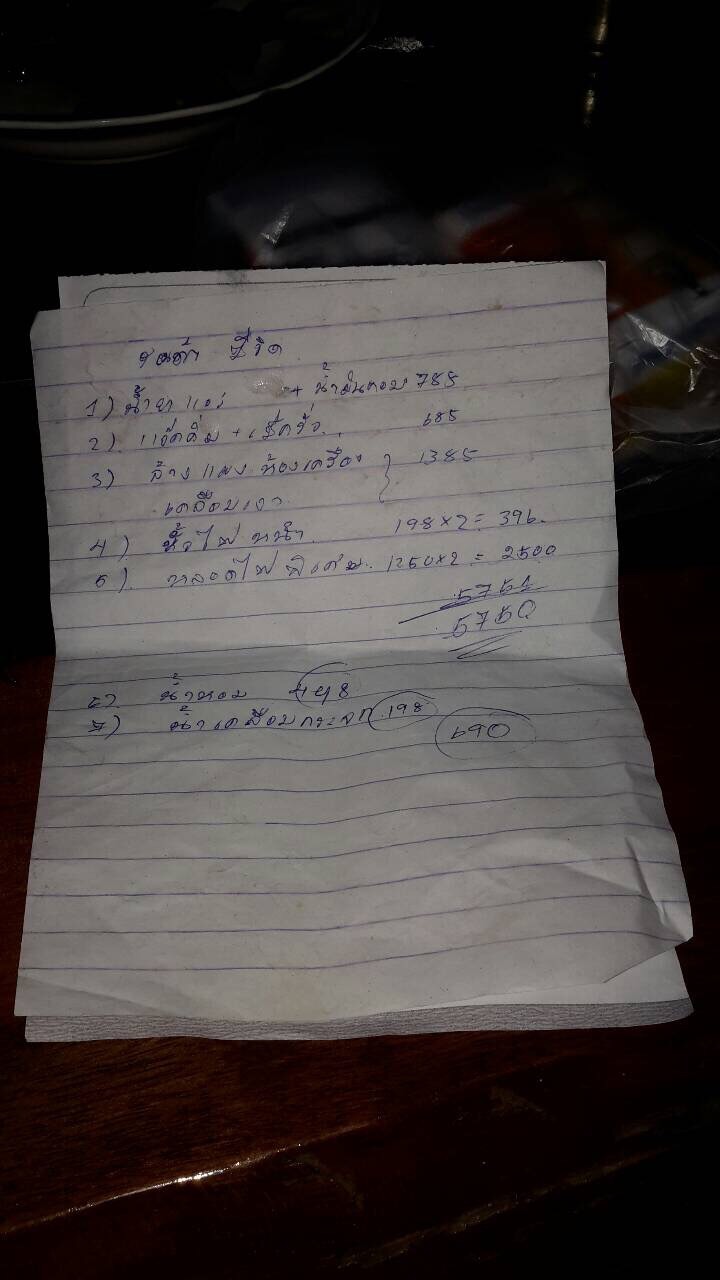 ฮอนด้า ซีวิค
1) น้ำยาแอร์ + น้ำมันคอม 785
2) แว๊คคั่ม + เช็ครั่ว 685
3) ล้างแผง ห้องเครื่อง } 1385
เคลือบเงา
4) ขั้วไฟ หน้า 198×2 = 396.
5) หลอดไฟ พิเศษ 1250×2 = 2500
5751
5750
6) น้ำหอม 498
7) น้ำเคลือบกระจก 198
690